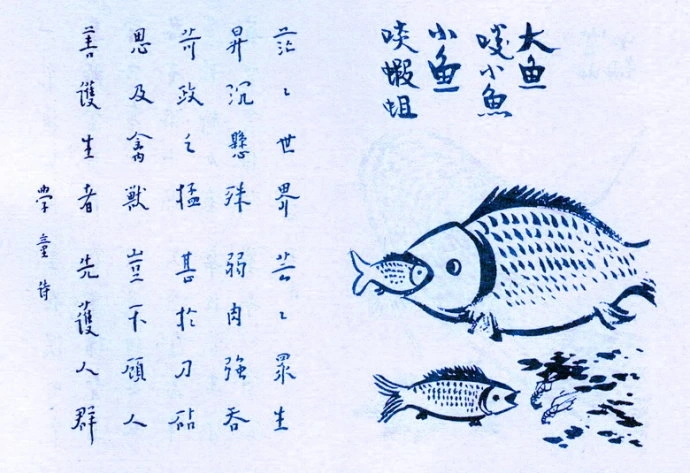 大魚
啖小魚
小魚
啖蝦蛆
茫々世界芸々眾生
昇沉懸殊弱肉強吞
苛政之猛甚於刀砧
恩及禽獸豈不顧人
善護生者先護人群
学童詩